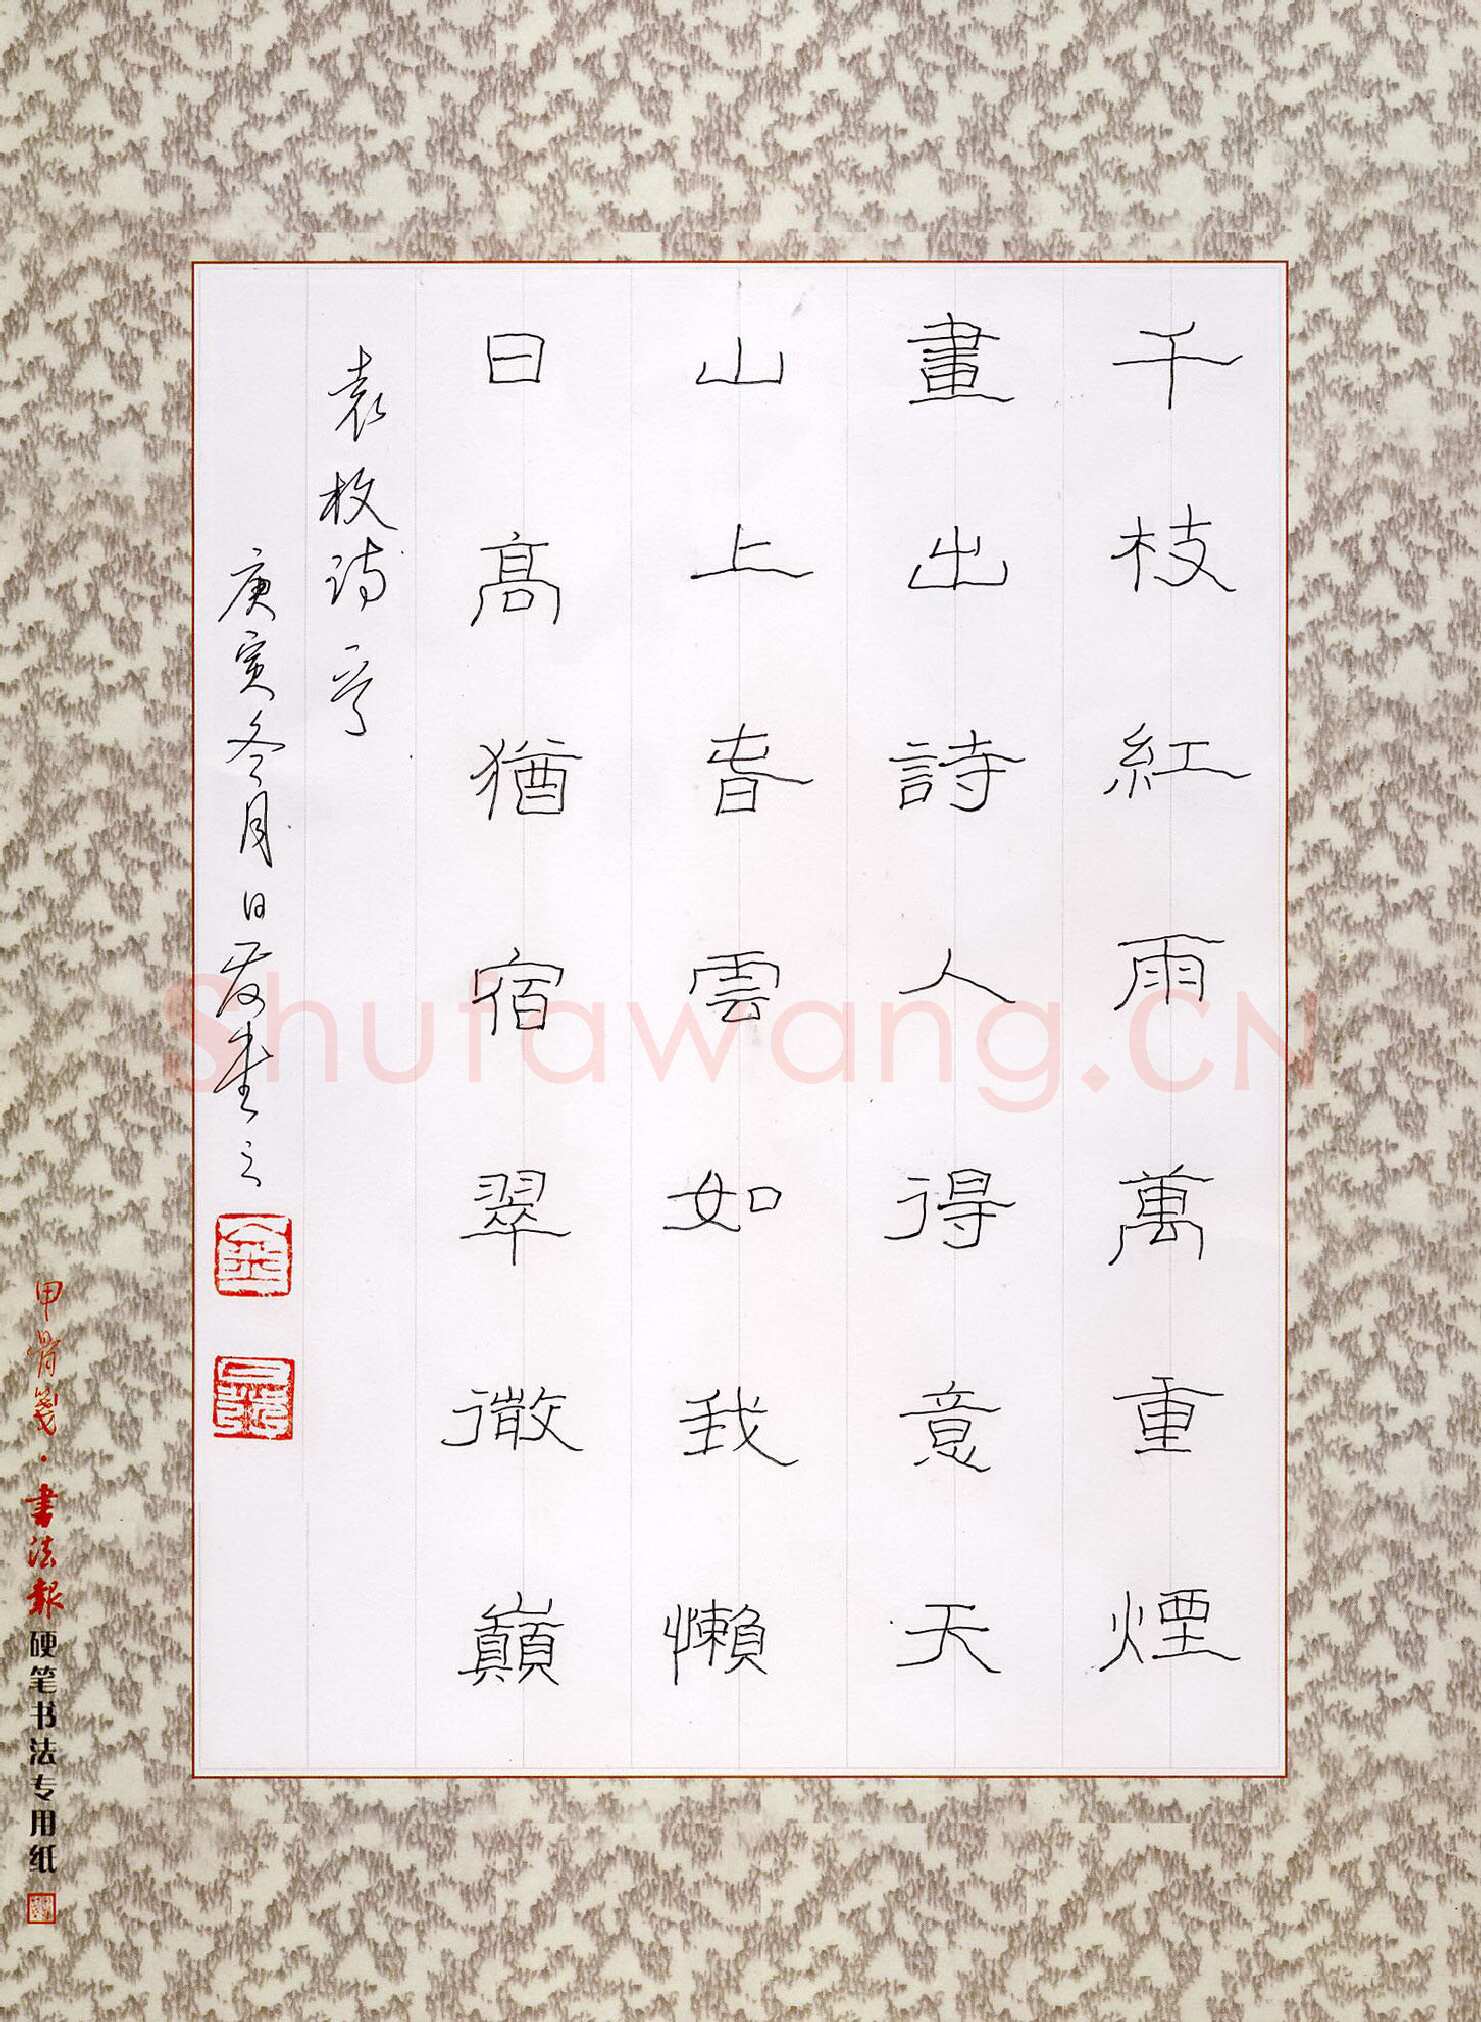 千枝紅雨萬重煙
畫出詩人得意天
山上春雲如我懶
日高猶宿翠微巔
袁枚詩一首
庚寅冬月日發書之
甲骨箋·書法報硬笔书法专用纸
Shufawang.CN